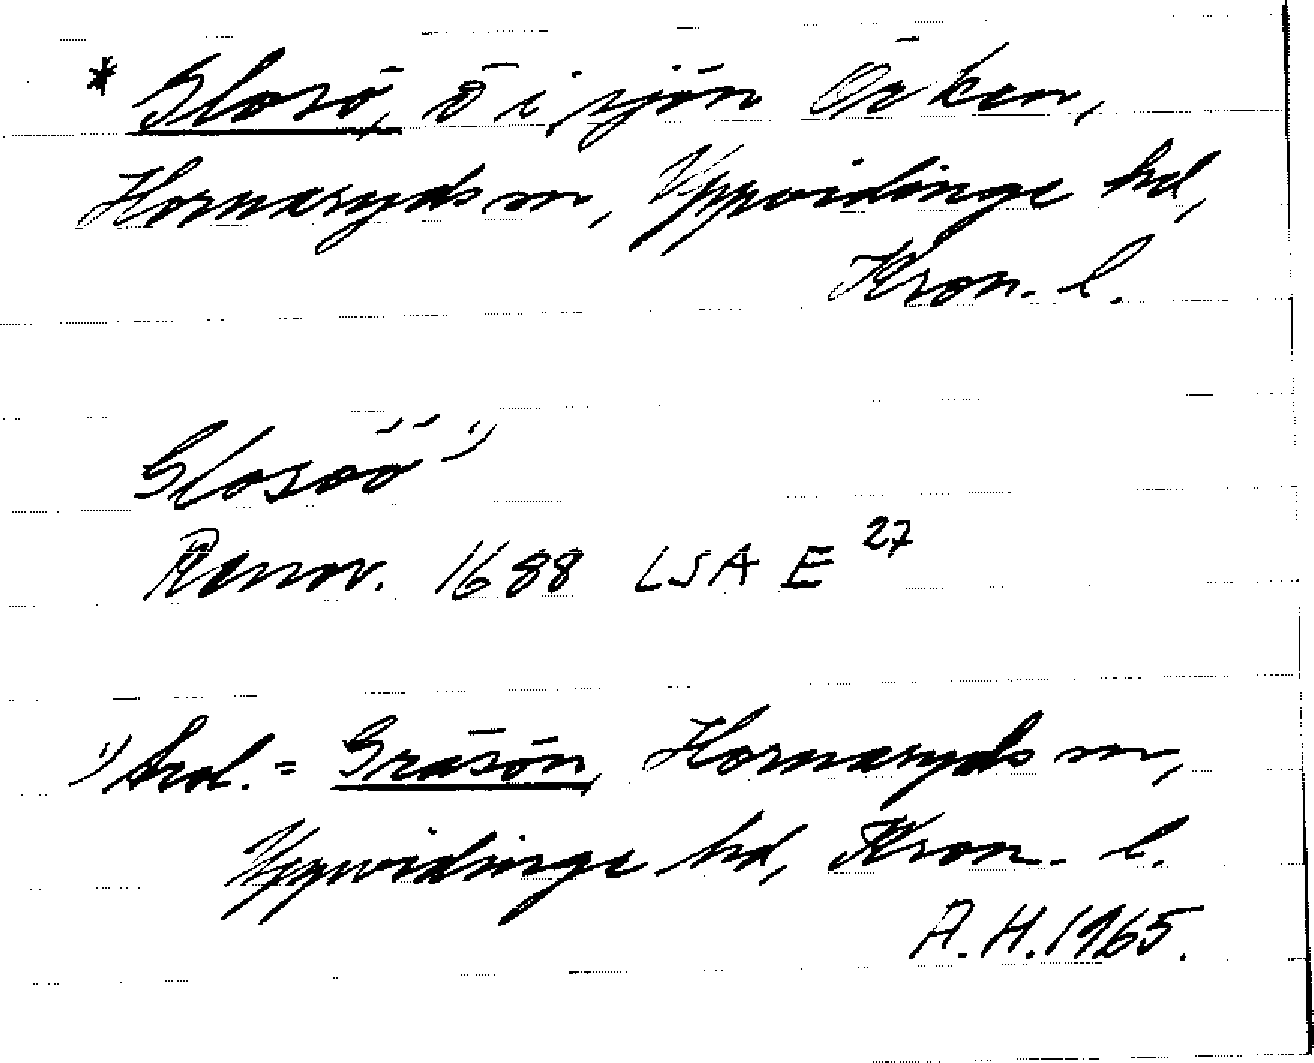 * Glosö, ö i sjön Örken,
Hornaryds sn, Uppvidinge hd,
Kron. l.
Glosöö ¹⁾
Renov. 1688 LSA E 27
¹⁾ Trol. = Gräsön, Hornaryds sn,
Uppvidinge hd, Kron. l.
A. H. 1965.